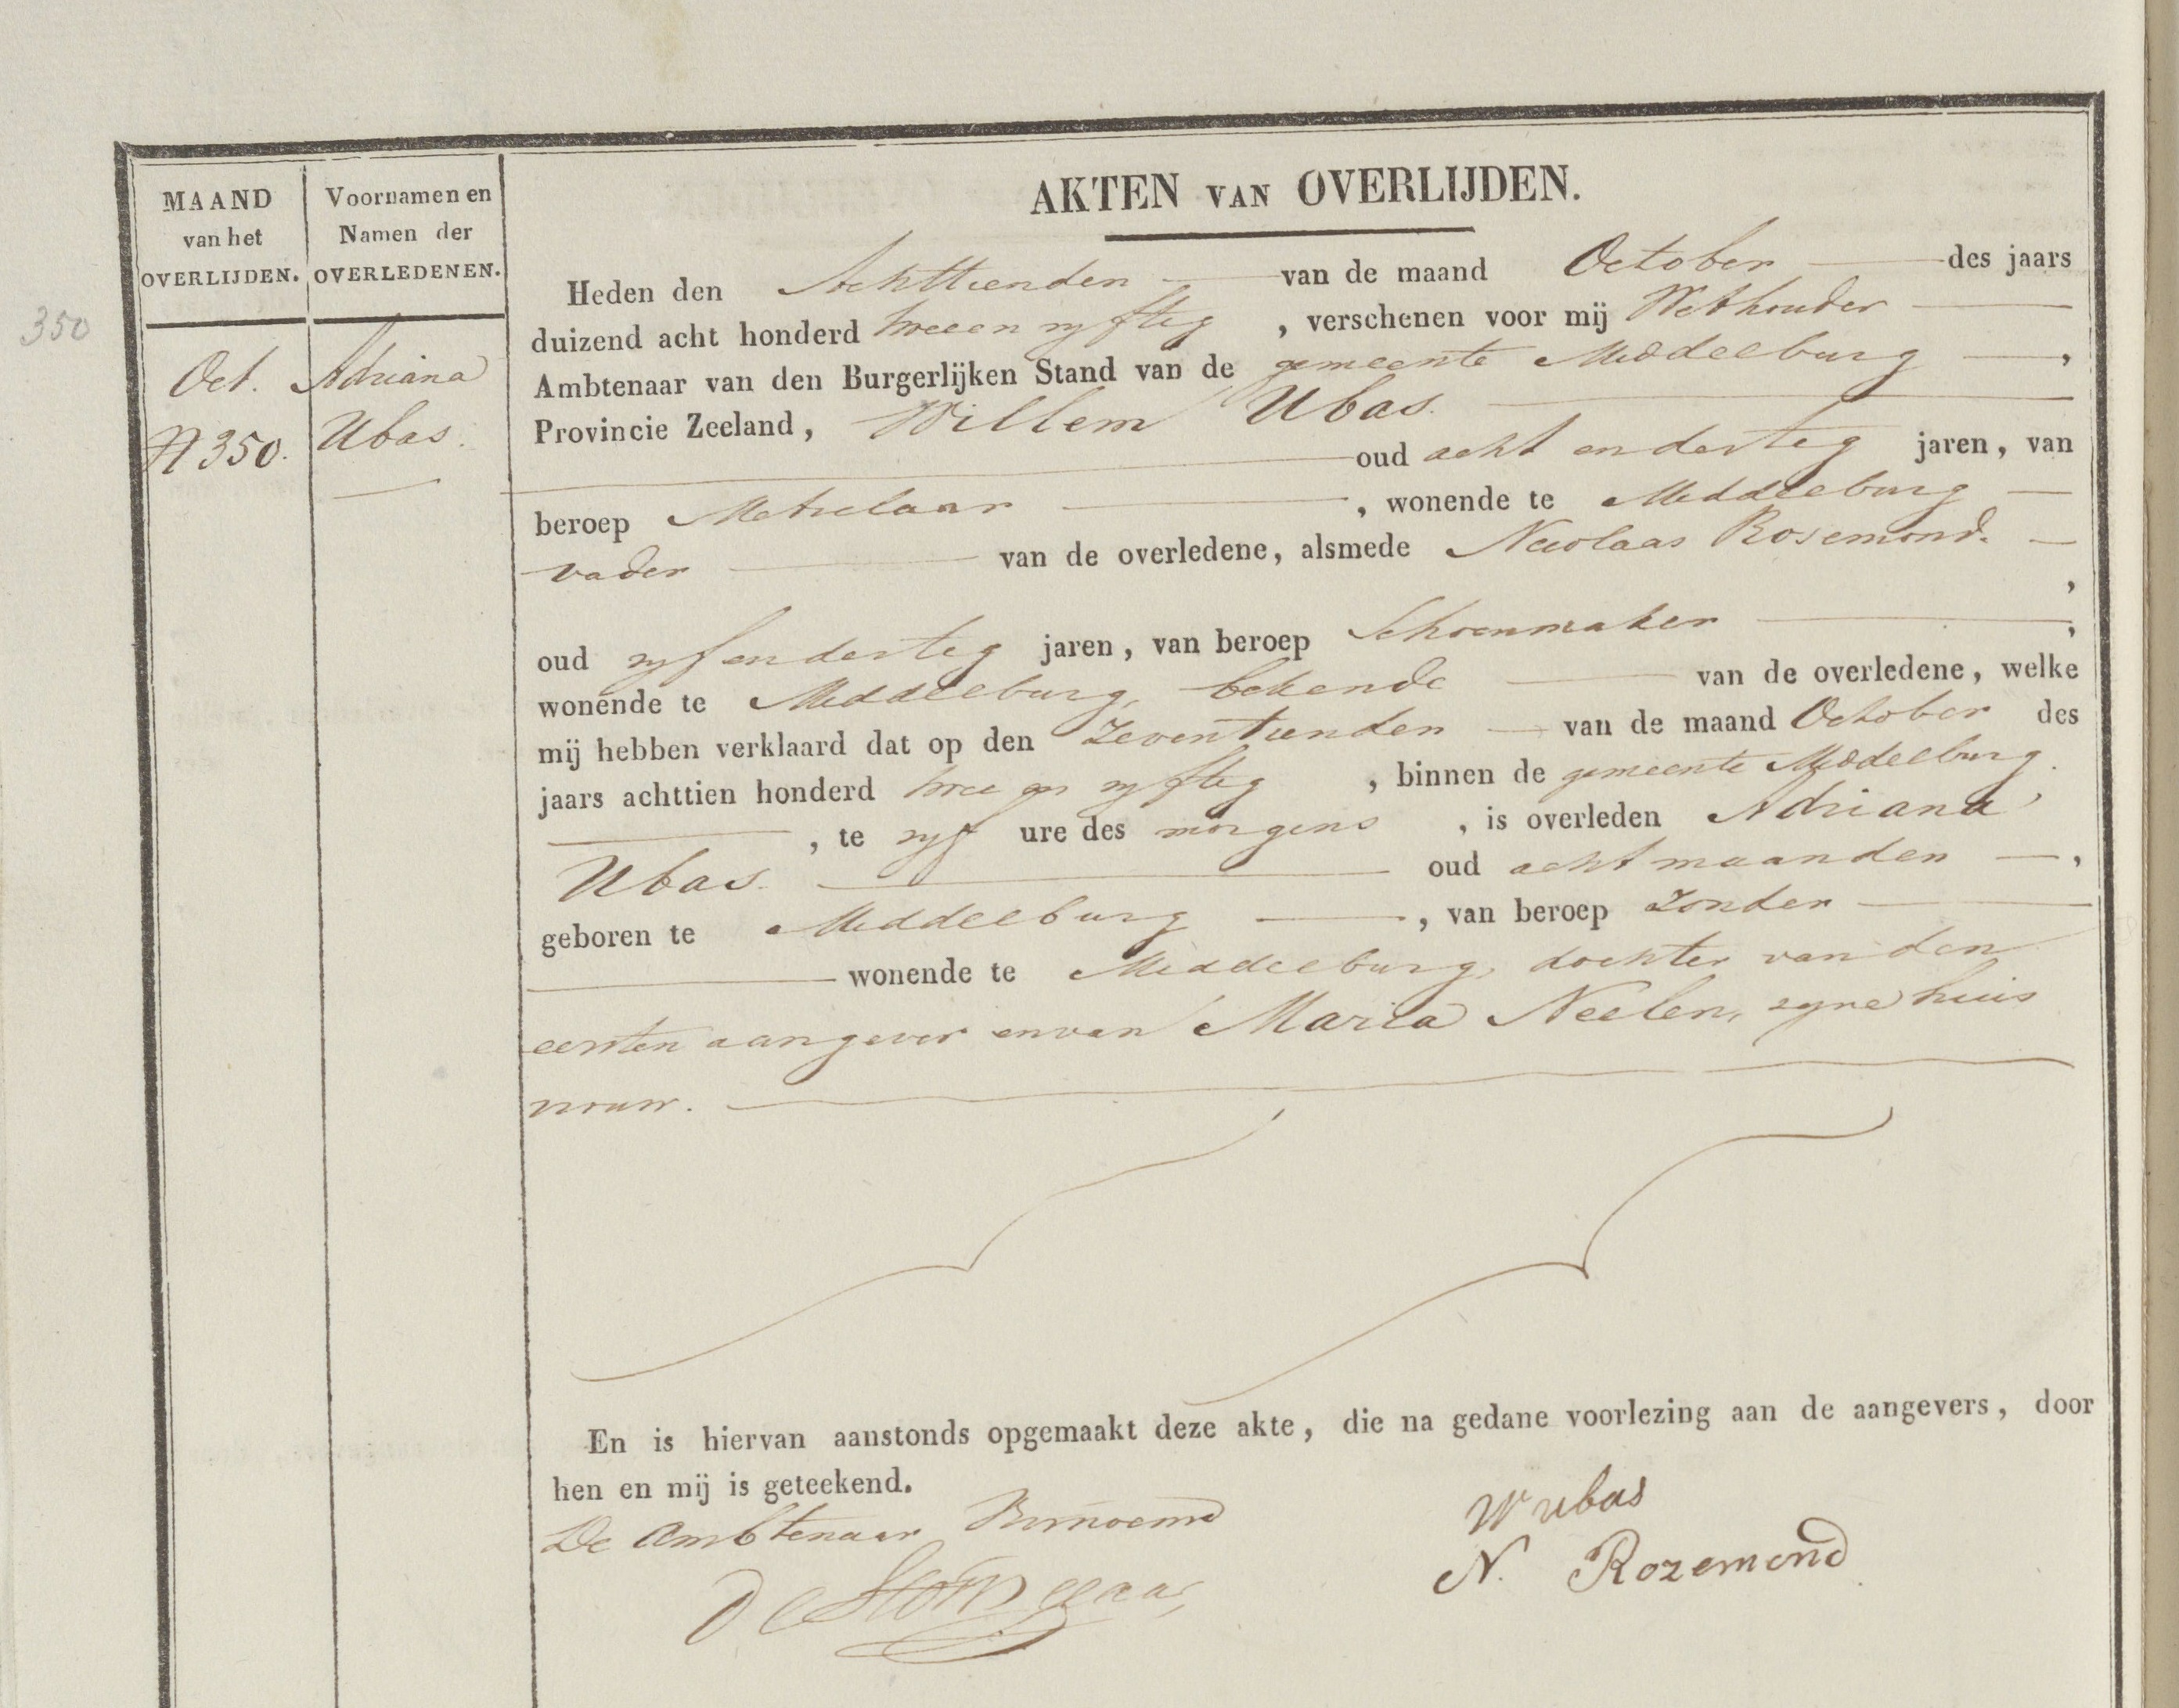 AKTEN VAN OVERLIJDEN.
MAAND
van het
OVERLIJDEN.
Voornamen en
Namen der
OVERLEDENEN.
350
Oct.
N 350.
Adriana
Ubas.
Heden den Achttienden van de maand October des jaars
duizend acht honderd twee en vyftig , verschenen voor mij Wethouder
Ambtenaar van den Burgerlijken Stand van de gemeente Middelburg ,
Provincie Zeeland, Willem Ubas.
oud acht en dertig jaren, van
beroep Metselaar , wonende te Middelburg
vader van de overledene, alsmede Nicolaas Rosemond.
,
oud vyf en dertig jaren, van beroep Schoenmaker ,
wonende te Middelburg, bekende van de overledene, welke
mij hebben verklaard dat op den Zeventienden van de maand October des
jaars achttien honderd twee en vyftig , binnen de gemeente Middelburg.
, te vyf ure des morgens , is overleden Adriana
Ubas. oud acht maanden ,
geboren te Middelburg , van beroep zonder
wonende te Middelburg, dochter van den
eersten aangever en van Maria Neelen, zyne huis
vrouw.
En is hiervan aanstonds opgemaakt deze akte, die na gedane voorlezing aan de aangevers, door
hen en mij is geteekend.
De Ambtenaar
W ubas
N. Rozemond